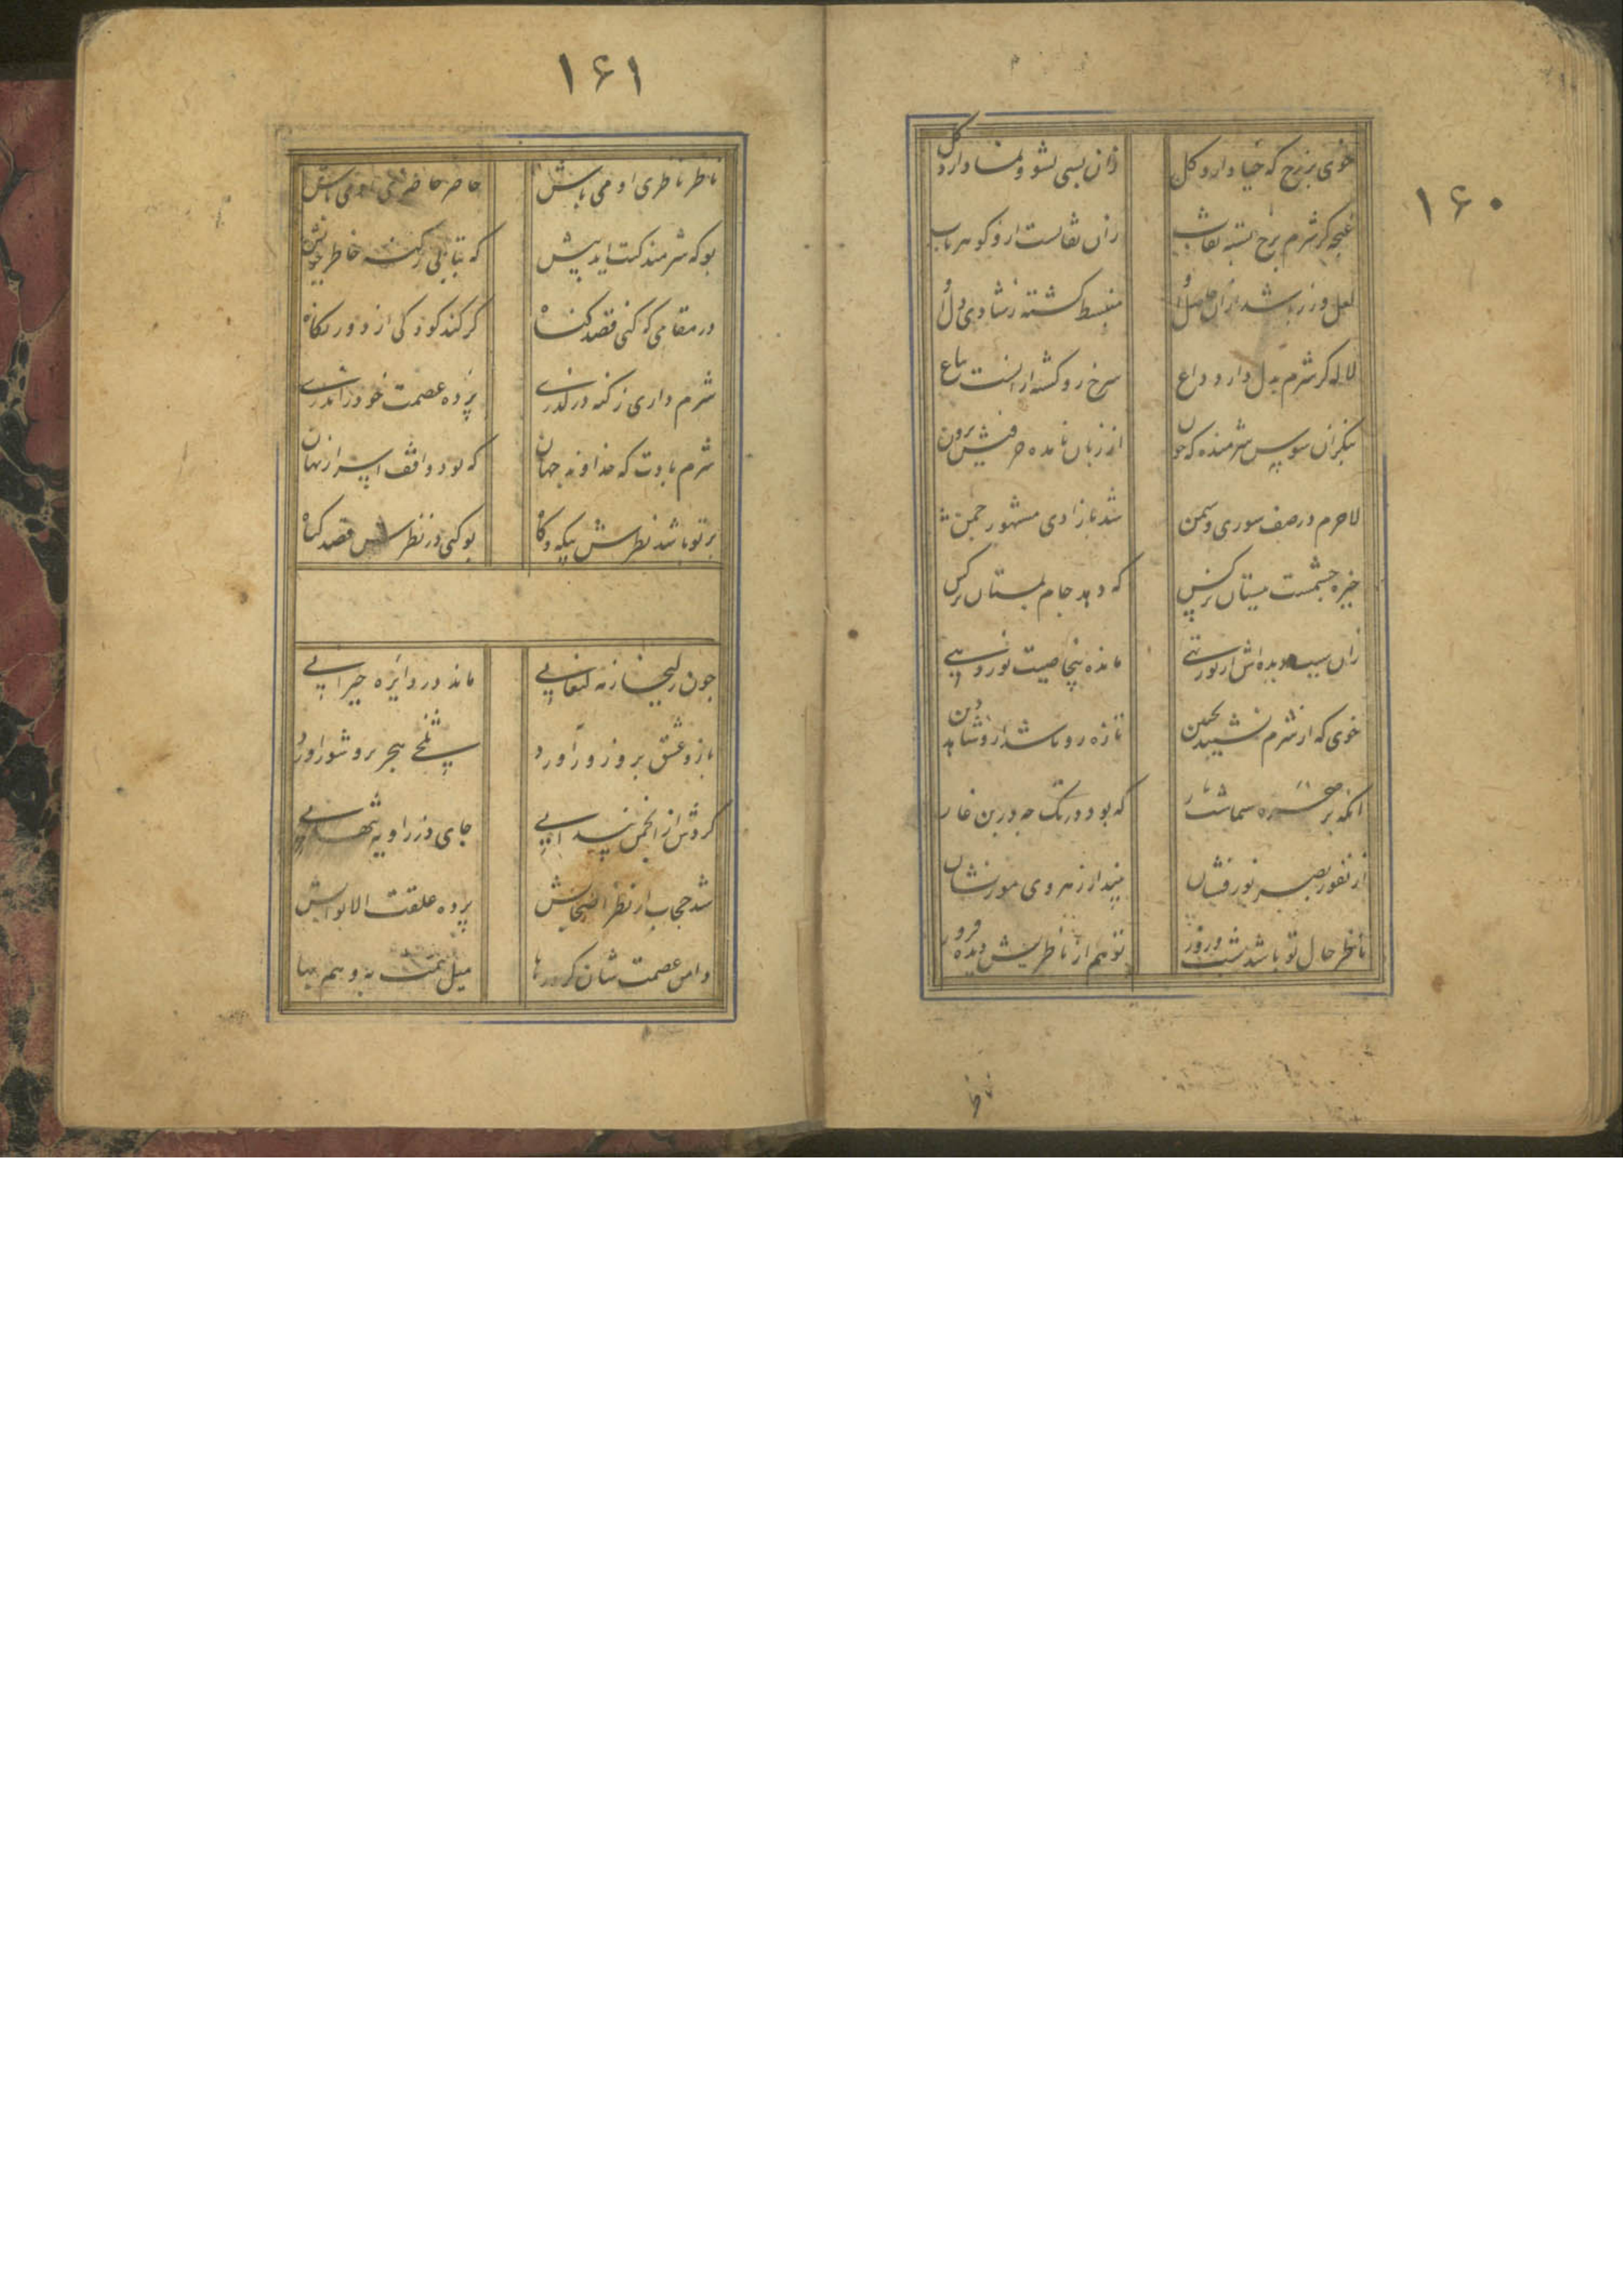 ۱۶۰
خوی برزخ که حیا دارد کل زان بسی نشو و نما دارد کل
غنچه کز شرم برخ بسته نقاب زان نقابست ازو کوهر یاب
لعل و زر باشد ازان حاصل او منبسط کشته ز شادی دل او
لاله کز شرم بدل دارد داغ سرخ رو کشته ازانست بباغ
بنکر آن سوسن شرمنده که چون از زبان نامده حرفیش برون
لاجرم در صف سوری و سمن شد بآزادی مشهور چمن
خیره چشمست ببستان نرکس که دهد جام بمستان نرکس
زان سبب دیده‌اش از نور تهی مانده بی خاصیت نور دهی
خوی که از شرم نشیند بجبین تازه رو باشد ازو شاهد دین
آنکه بر چهره سماشت
که بود در تک چه در بن غار
از نفور بصر نورفشان بیند از زهروی مور نشان
ناظر حال تو باشد شب و روز تو هم از ناظریش دیده فروز
۱۶۱
ناظر ناظری او می باش حاضر حاضری او می باش
بو که شرمندکیت آید پیش که بتابی ز کنه خاطر خویش
در مقامی که کنی قصد کناه کر کند کودکی از دور نکاه
شرم داری ز کنه در کذری پرده عصمت خود را ندری
شرم بادت که خداوند جهان که بود واقف اسرار نهان
بر تو باشد نظرش بیکه و کاه تو کنی در نظرش قصد کناه
چون زلیخا ز مه کنعانی ماند در دایره حیرانی
بازوی عشق برو زور آورد تلخی هجر برو شور آورد
کردش از انجمن شیدایی جای در زاویه تنهایی
شد حجاب از نظر انجانش پرده غلقت الابوابش
دامن عصمت شان کرد رها میل همت به و هم بها